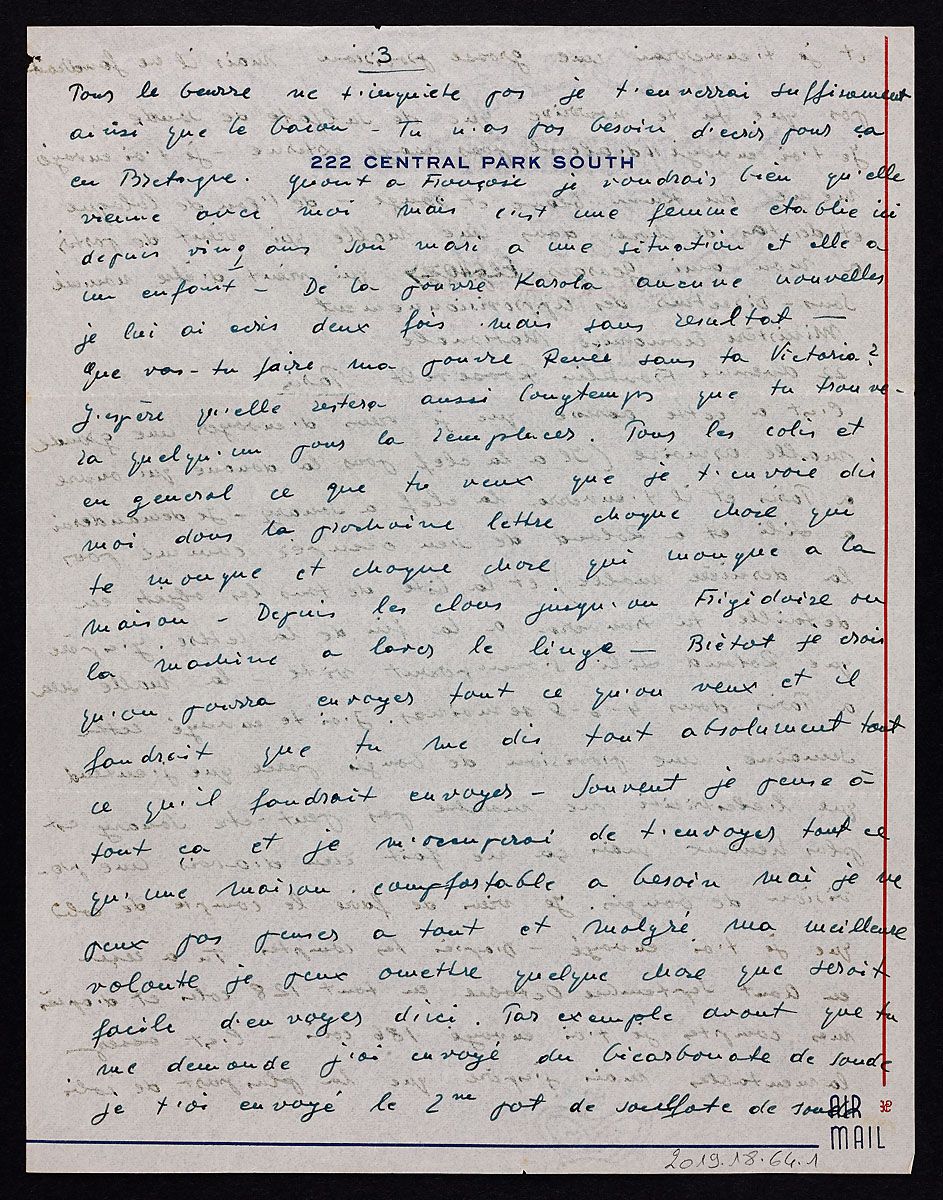 3
Tous le beurre ne t'inquiete pas je t'enverrai suffisament
ainsi que le bacon - Tu n'as pas besoin d'ecrir pour ça
222 CENTRAL PARK SOUTH
en Bretagne. Quant a Françoise je voudrais bien qu'elle
vienne avec moi mais c'est une femme etablie ici
depuis ving ans son mari a une situation et elle a
un enfant - De la pauvre Karola aucune nouvelles
je lui ai ecris deux fois mais sans resultat —
Que vas-tu faire ma pauvre Renée sans ta Victoria?
J'espère qu'elle restera aussi longtemps que tu trouve-
ra quelqu'un pour la remplacer. Tous les colis et
en general ce que tu veux que je t'envoie dis
moi dans ta prochaine lettre chaque chose qui
te manque et chaque chose qui manque a la
maison - Depuis les clous jusqu'au Frigidaire ou
la machine a laver le linge — Biêtot je crois
qu'on pourra envoyer tout ce qu'on veux et il
faudrait que tu me dis tout absolument tout
ce qu'il faudrait envoyer - Souvent je pense à
tout ca et je m'occuperai de t'envoyer tout ce
qu'une maison comfostable a besoin mai je ne
peux pas penser a tout et malgré ma meilleure
volonte je peux omettre quelque chose que serait
facile d'envoyer d'ici. Par exemple avant que tu
me demande j'ai envoyé du bicarbonate de soude
je t'ai envoyé le 2me pot de soulfate de soude
AIR
MAIL
2019.18.64.1